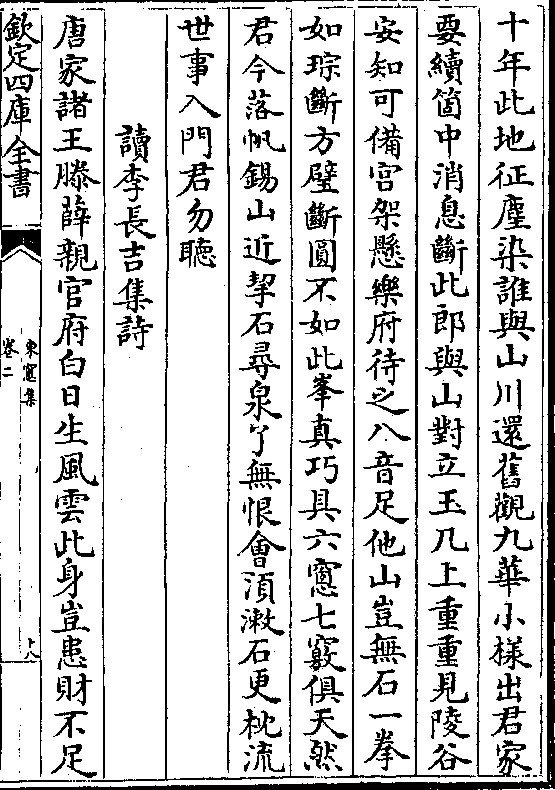 十年此地征塵染誰與山川還舊觀九華小様出君家
要續箇中消息斷此郎與山對立玉几上重重見陵谷
安知可備宫架懸樂府待之八音足他山豈無石一拳
如琮斷方璧斷圓不如此峯真巧具六窻七竅俱天然
君今落帆錫山近挈石尋泉了無恨會湏漱石更枕流
世事入門君勿聽
讀李長吉集詩
唐家諸王滕薛親官府白日生風雲此身豈患財不足
欽定四庫全書
東窻集
卷二
十八